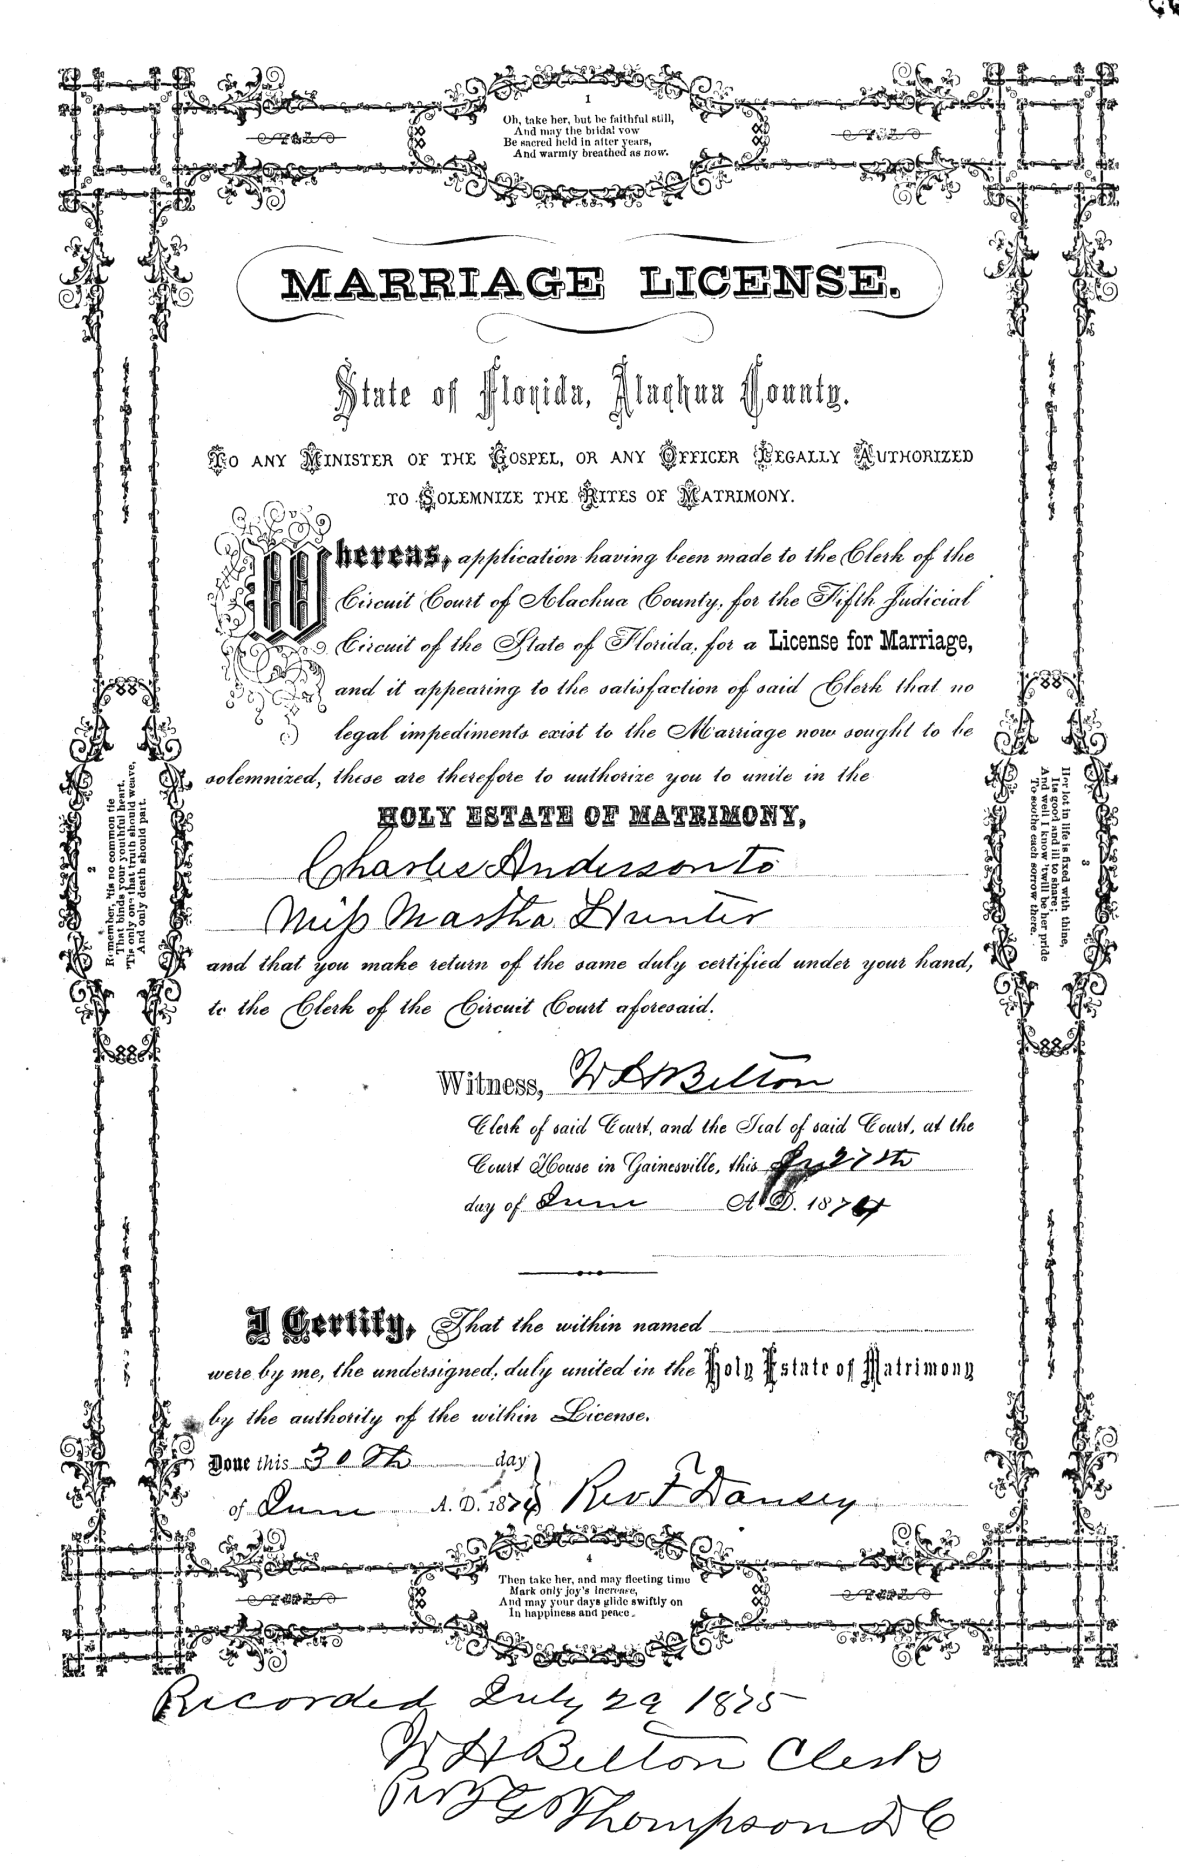 1
Oh, take her, but be faithful still,
And may the bridal vow
Be sacred held in after years,
And warmly breathed as now.
MARRIAGE LICENSE.
State of Florida, Alachua County.
TO ANY MINISTER OF THE GOSPEL, OR ANY OFFICER LEGALLY AUTHORIZED
TO SOLEMNIZE THE RITES OF MATRIMONY.
Whereas, application having been made to the Clerk of the
Circuit Court of Alachua County, for the Fifth Judicial
Circuit of the State of Florida, for a License for Marriage,
and it appearing to the satisfaction of said Clerk that no
legal impediments exist to the Marriage now sought to be
solemnized, these are therefore to authorize you to unite in the
HOLY ESTATE OF MATRIMONY,
Charles Anderson to
Miss Martha Hunter
and that you make return of the same duly certified under your hand,
to the Clerk of the Circuit Court aforesaid.
2
Remember, 'tis no common tie
That binds your youthful heart,
'Tis only one that truth should weave,
And only death should part.
3
Her lot in life is fixed with thine,
Its good and ill to share;
And well I know 'twill be her pride
To soothe each sorrow there.
Witness, W H Belton
Clerk of said Court, and the Seal of said Court, at the
Court House in Gainesville, this 27th
day of June A. D. 1874
I Certify, That the within named
were by me, the undersigned, duly united in the Holy Estate of Matrimony
by the authority of the within License.
Done this 30th day
of June A. D. 1874 Rev F Dansey
4
Then take her, and may fleeting time
Mark only joy's increase,
And may your days glide swiftly on
In happiness and peace.
Recorded July 29 1875
W H Belton Clerk
Thompson D C